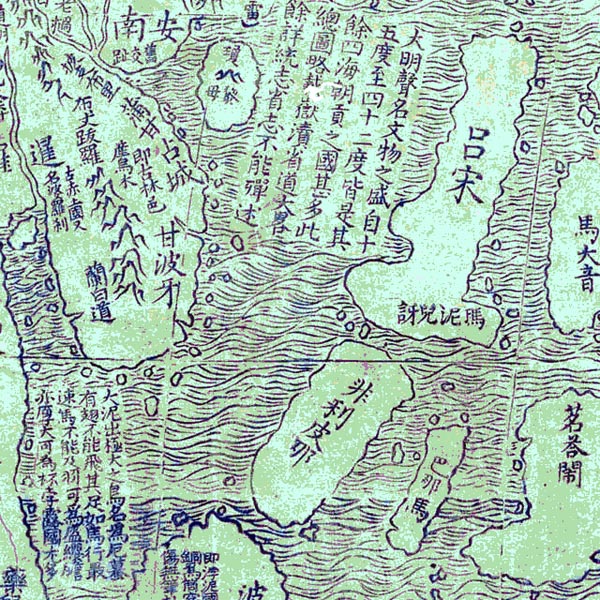 安南
舊交趾
黎母
大明聲名文物之盛自十
五度至四十二度皆是其
餘四海朝貢之國甚多此
總圖略載嶽瀆省道大畧
餘詳統志省志不能殫述
呂宋
馬大音
占城
即古林邑
甘波牙
暹羅
古赤土國又
名波羅剎
瑪泥児訝
非利皮那
巴那馬
茗荅閙
大泥出極大之鳥名爲厄蟇
有翅不能飛其足如馬行最
速馬不能及羽可為盔纓膽
亦厚大可為杯孛露國尤多
波